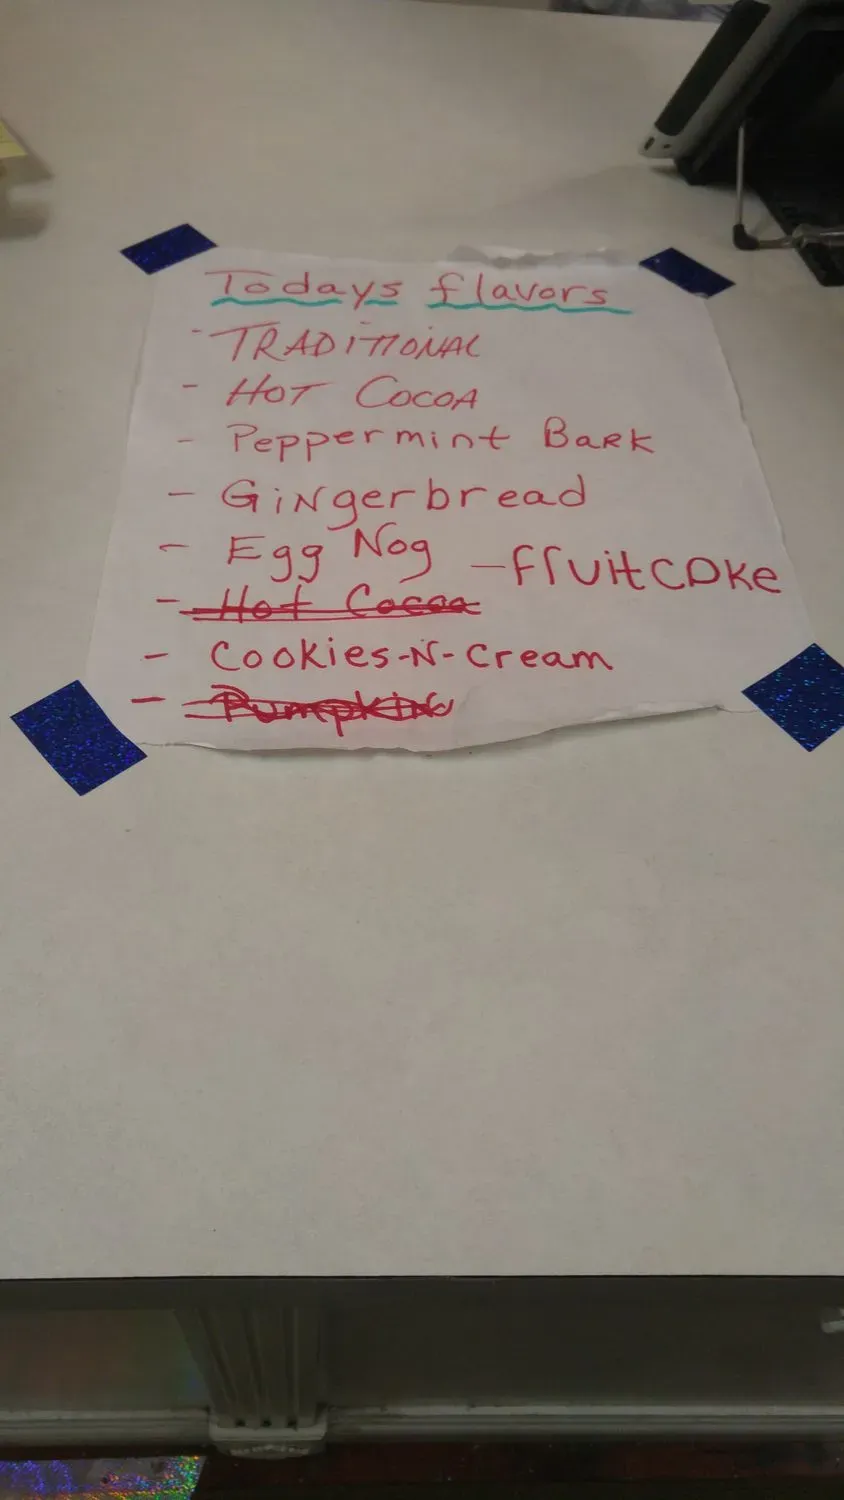 Todays flavors
- TRADITIONAL
- HOT COCOA
- Peppermint Bark
- Gingerbread
- Egg Nog
- fruitcake
- Hot Cocoa
- Cookies-N-Cream
- Pumpkin